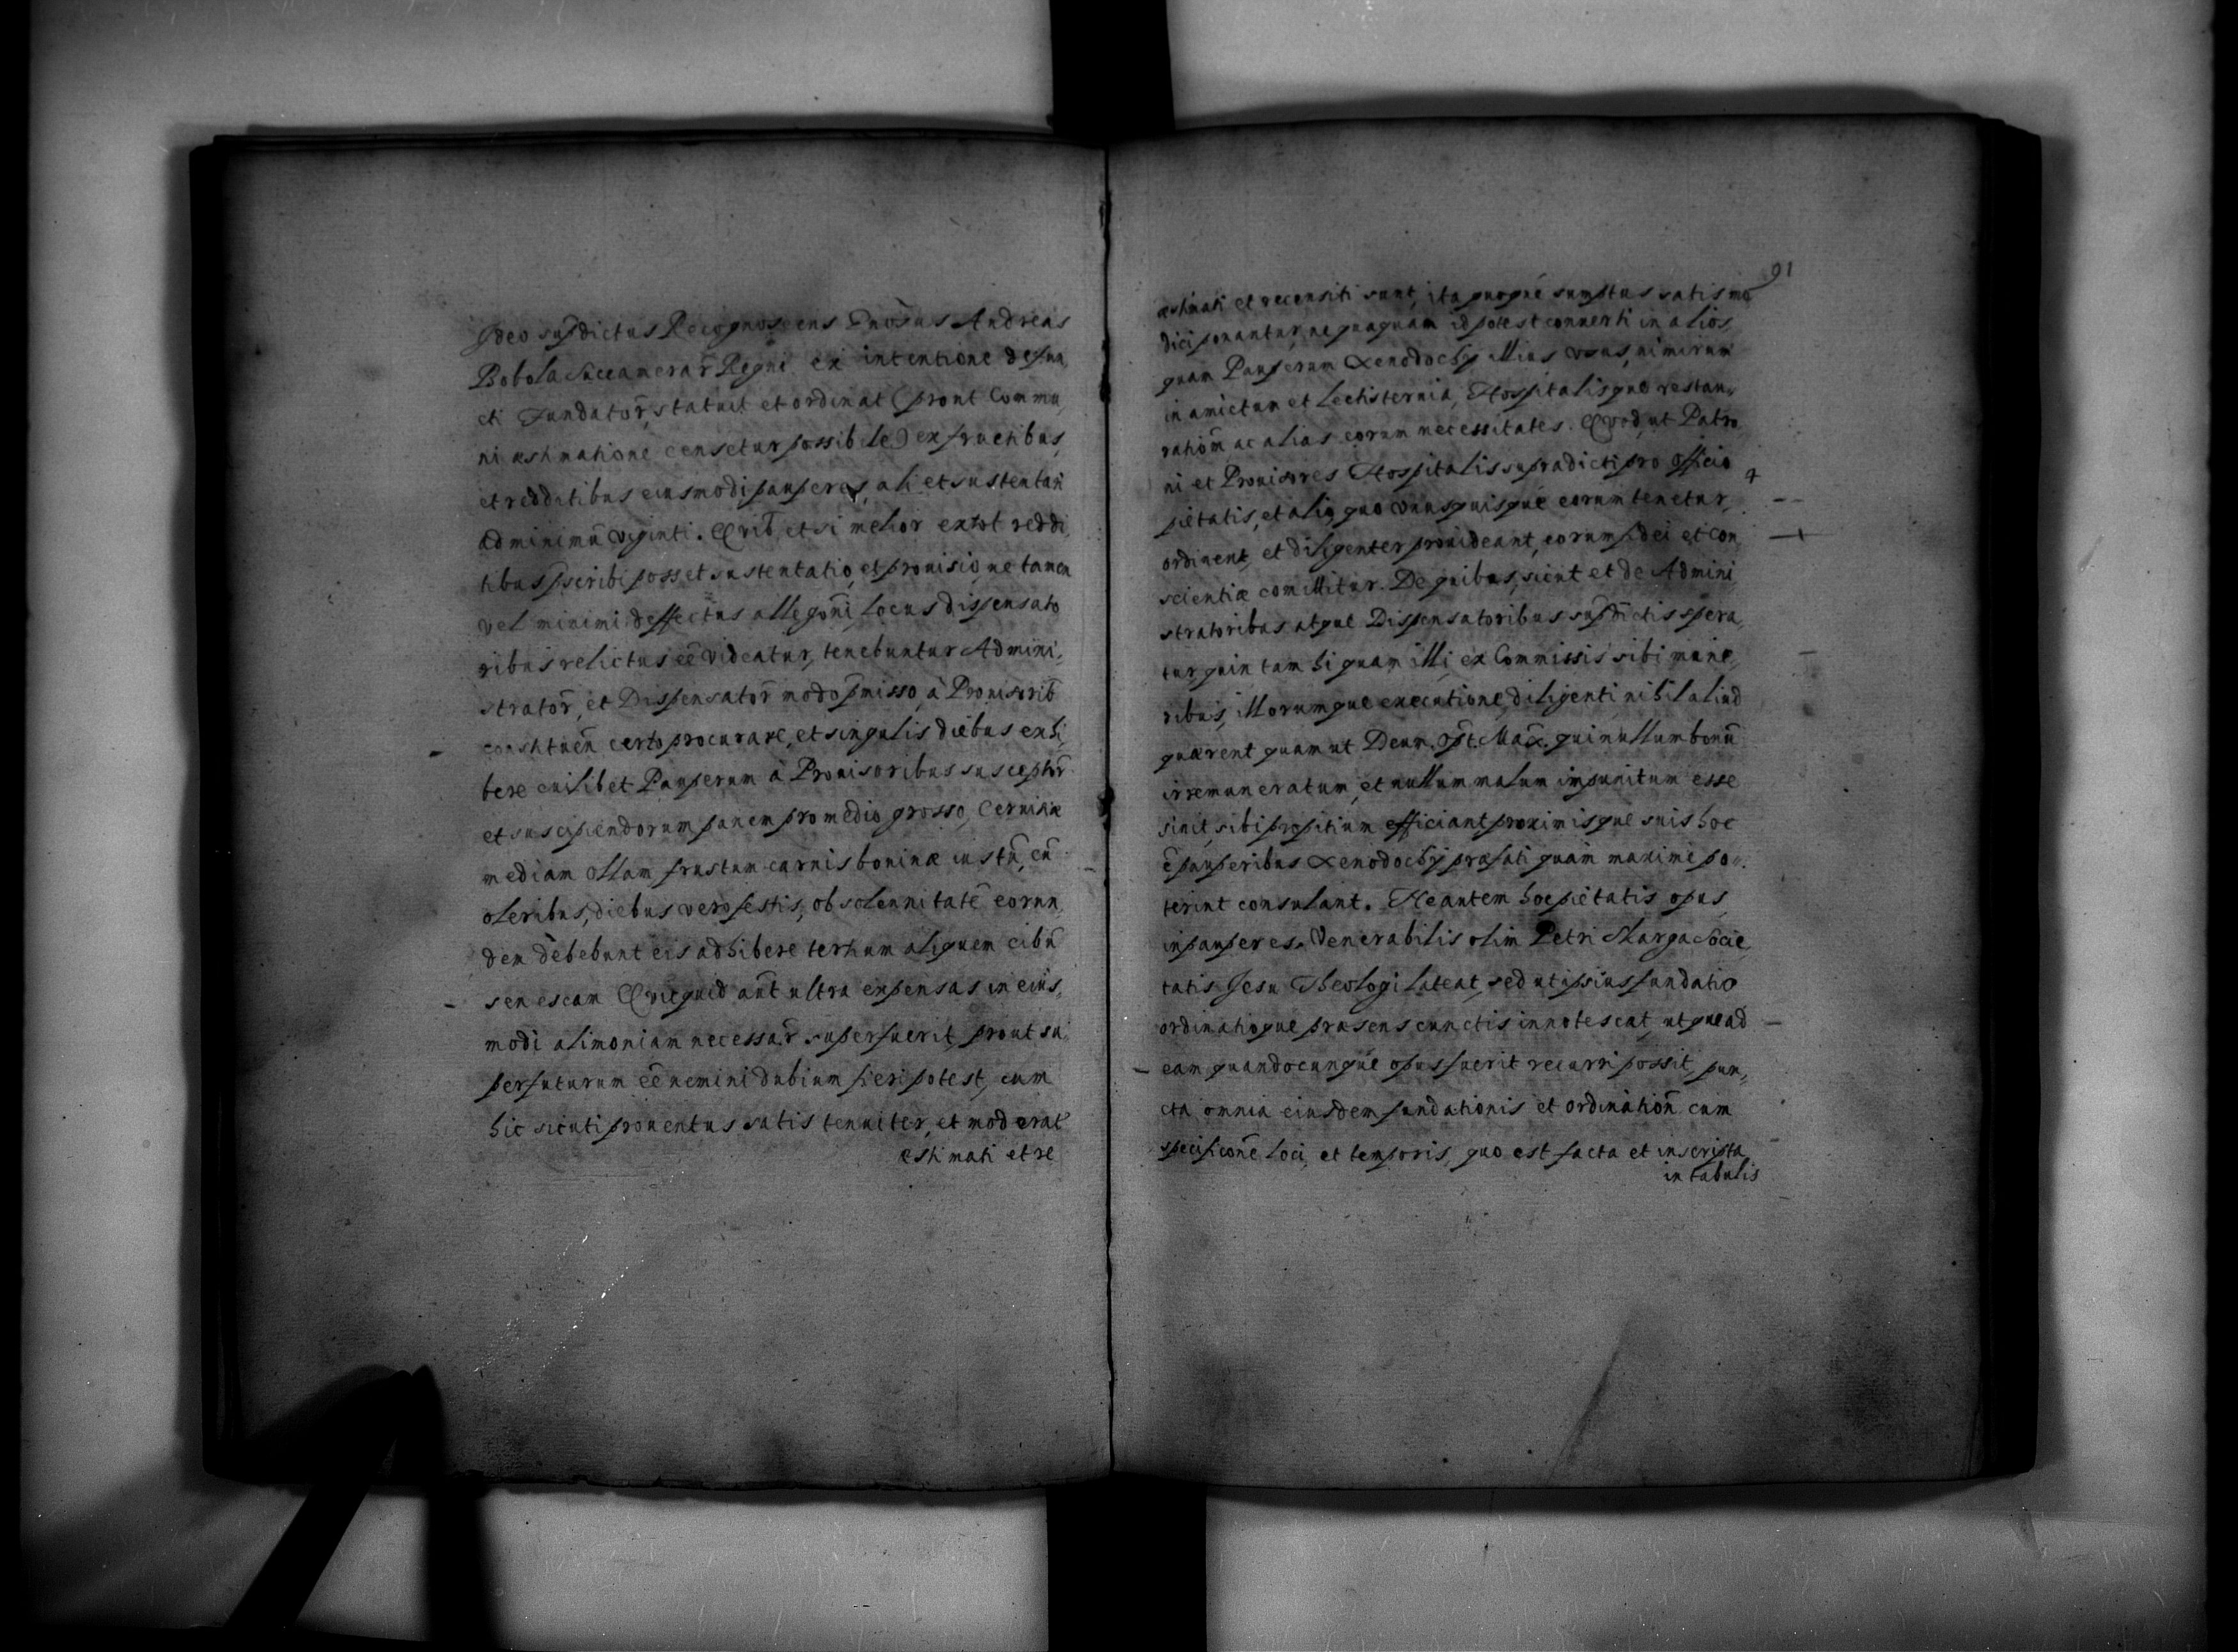 Ideo sup̄dictus Recognoscens Gnōsus Andreas
Bobola Succamerar̄ Regni ex intentione defun,
cti Fundator̄, statuit et ordinat (prout Commu,
ni æstimatione censetur possibile) ex fructibus,
et redditibus eiusmodi pauperes, ali et sustentari
ad minimū viginti. Quib̄, et si melior ex tot reddi,
tibus p̄scribi posset sustentatio, et prouisio, ne tamen
vel minimi deffectus allegōni, locus dispensato
ribus relictus eē videatur, tenebuntur Admini,
strator̄, et Dispensator̄ modo p̄misso, à Prouisorib̄
constituēn certo procurare, et singulis diebus exhi,
bere cuilibet Pauperum à Prouisoribus susceptor̄
et suscipiendorum panem pro medio grosso, Ceruisiæ
mediam ollam, frustum carnis bouinæ iustū, cū
oleribus, diebus vero festis, ob solennitatē eorun,
dem debebunt eis adhibere tertium aliquem cibū
seu escam Quicquid aut̄ ultra expensas in eius,
modi alimoniam necessar̄ superfuerit, prout su,
perfuturum eē nemini dubium fieri potest, cum
hic sicuti prouentus satis tenuiter, et moderatē
æstimati et re
91
æstimati et recensiti sunt, ita quoque sumptus satis mo
dici ponantur, nequaquam id potest conuerti in alios,
quam Pauperum Xenodochij illius vsus, nimirum
in amictum et Lectisternia, Hospitalisque restau,
ratiōm ac alias eorum necessitates. Quod, ut Patro,
ni et Prouisores Hospitalis supradicti pro officio
pietatis, et alio, quo vnusquisque eorum tenetur,
ordinent, et diligenter prouideant, eorum fidei et con,
scientiæ comittitur. De quibus, sicut et de Admini,
stratoribus atque Dispensatoribus sup̄dictis spera,
tur quin tam hi quam illi, ex Commissis sibi mune,
ribus, illorumque executione, diligenti nihil aliud
quærent quam ut Deum. Opt̄. Max̄. qui nullum bonū
irremuneratum, et nullum malum impunitum esse
sinit, sibi propitium efficiant, proximisque suis hoc
ē pauperibus Xenodochij præfati quàm maximè po,
terint consulant. Ne autem hoc pietatis opus,
in pauperes. Venerabilis olim Petri Skarga Socie,
tatis Jesu Theologi lateat, sed ut ipsius fundatio
ordinatioque præsens cunctis innotescat, utque ad
eam quandocunque opus fuerit recurri possit, pun,
cta omnia eiusdem fundationis et ordinatiōn cum
specificōne loci, et temporis, quo est facta et inscripta
in tabulis